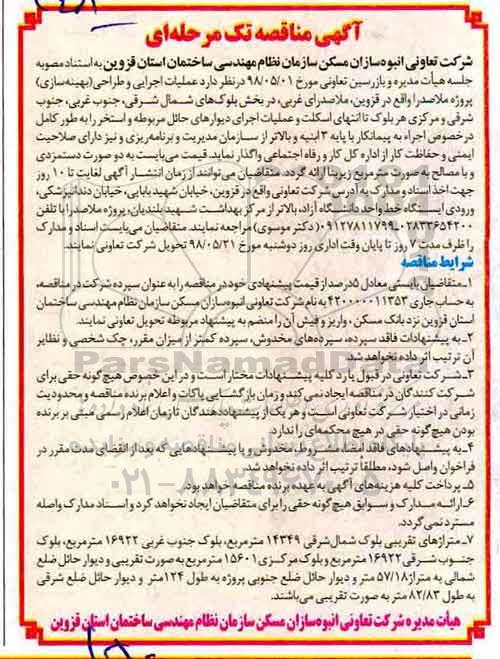 آگهی مناقصه تک مرحله‌ای
شرکت تعاونی انبوه‌سازان مسکن سازمان نظام مهندسی ساختمان استان قزوین به استناد مصوبه
جلسه هیأت مدیره و بازرسین تعاونی مورخ ۹۸/۰۵/۰۱ در نظر دارد عملیات اجرایی و طراحی (بهینه‌سازی)
پروژه ملاصدرا واقع در قزوین، ملاصدرای غربی، در بخش بلوک‌های شمال شرقی، جنوب غربی، جنوب
شرقی و مرکزی هر بلوک تا انتهای اسکلت و عملیات اجرای دیوارهای حائل مربوطه و استخر را به طور کامل
در خصوص اجراء به پیمانکار با پایه ۳ ابنیه و بالاتر از سازمان مدیریت و برنامه‌ریزی و نیز دارای صلاحیت
ایمنی و حفاظت کار از اداره کل کار و رفاه اجتماعی واگذار نماید. قیمت می‌بایست به دو صورت دستمزدی
و با مصالح به صورت مترمربع زیربنا ارائه گردد. متقاضیان می‌توانند از زمان انتشار آگهی لغایت تا ۱۰ روز
جهت اخذ اسناد و مدارک به آدرس شرکت تعاونی واقع در قزوین، خیابان شهید بابایی، خیابان دندانپزشکی،
ورودی ایستگاه خط واحد دانشگاه آزاد، بالاتر از مرکز بهداشت شهید بلندیان، پروژه ملاصدرا با تلفن
۰۲۸۳۳۶۵۴۲۰۰-۰۹۱۲۷۸۱۱۷۹۹ (دکتر موسوی) مراجعه نمایند. متقاضیان می‌بایست اسناد و مدارک
را ظرف مدت ۷ روز تا پایان وقت اداری روز دوشنبه مورخ ۹۸/۰۵/۳۱ تحویل شرکت تعاونی نمایند.
شرایط مناقصه
۱ـ متقاضیان بایستی معادل ۵درصد از قیمت پیشنهادی خود در مناقصه را به عنوان سپرده شرکت در مناقصه،
به حساب جاری ۴۲۰۰۰۰۰۱۱۳۵۳ به نام شرکت تعاونی انبوه‌سازان مسکن سازمان نظام مهندسی ساختمان
استان قزوین نزد بانک مسکن ، واریز و فیش آن را منضم به پیشنهاد مربوطه تحویل تعاونی نمایند.
۲ـ به پیشنهادات فاقد سپرده، سپرده‌های مخدوش، سپرده کمتر از میزان مقرر، چک شخصی و نظایر
آن ترتیب اثر داده نخواهد شد.
۳ـ شرکت تعاونی در قبول یا رد کلیه پیشنهادات مختار است و در این خصوص هیچ گونه حقی برای
شرکت کنندگان در مناقصه ایجاد نمی‌کند و زمان بازگشایی پاکات و اعلام برنده مناقصه و محدودیت
زمانی در اختیار شرکت تعاونی است و هر یک از پیشنهاددهندگان تا زمان اعلام رسمی مبنی بر برنده
بودن هیچ گونه حقی در هیچ محکمه‌ای را ندارد.
۴ـ به پیشنهادهای فاقد امضاء، مشروط، مخدوش و یا پیشنهادهایی که بعد از انقضای مدت مقرر در
فراخوان واصل شود، مطلقاً ترتیب اثر داده نخواهد شد.
۵ـ پرداخت کلیه هزینه‌های آگهی به عهده برنده مناقصه خواهد بود.
۶ـ ارائه مدارک و سوابق هیچ گونه حقی را برای متقاضیان ایجاد نخواهد کرد و اسناد مدارک واصله
مسترد نمی‌گردد.
۷ـ متراژهای تقریبی بلوک شمال شرقی ۱۴۳۴۹ مترمربع، بلوک جنوب غربی ۱۶۹۲۲ مترمربع، بلوک
جنوب شرقی ۱۶۹۲۲ مترمربع و بلوک مرکزی ۱۵۶۰۱ مترمربع به صورت تقریبی و دیوار حائل ضلع
شمالی به متراژ ۵۷/۱۸ متر و دیوار حائل ضلع جنوبی پروژه به طول ۱۲۴متر و دیوار حائل ضلع شرقی
به طول ۸۲/۸۳ متر به صورت تقریبی می‌باشند.
هیأت مدیره شرکت تعاونی انبوه‌سازان مسکن سازمان نظام مهندسی ساختمان استان قزوین
ParsNamadData